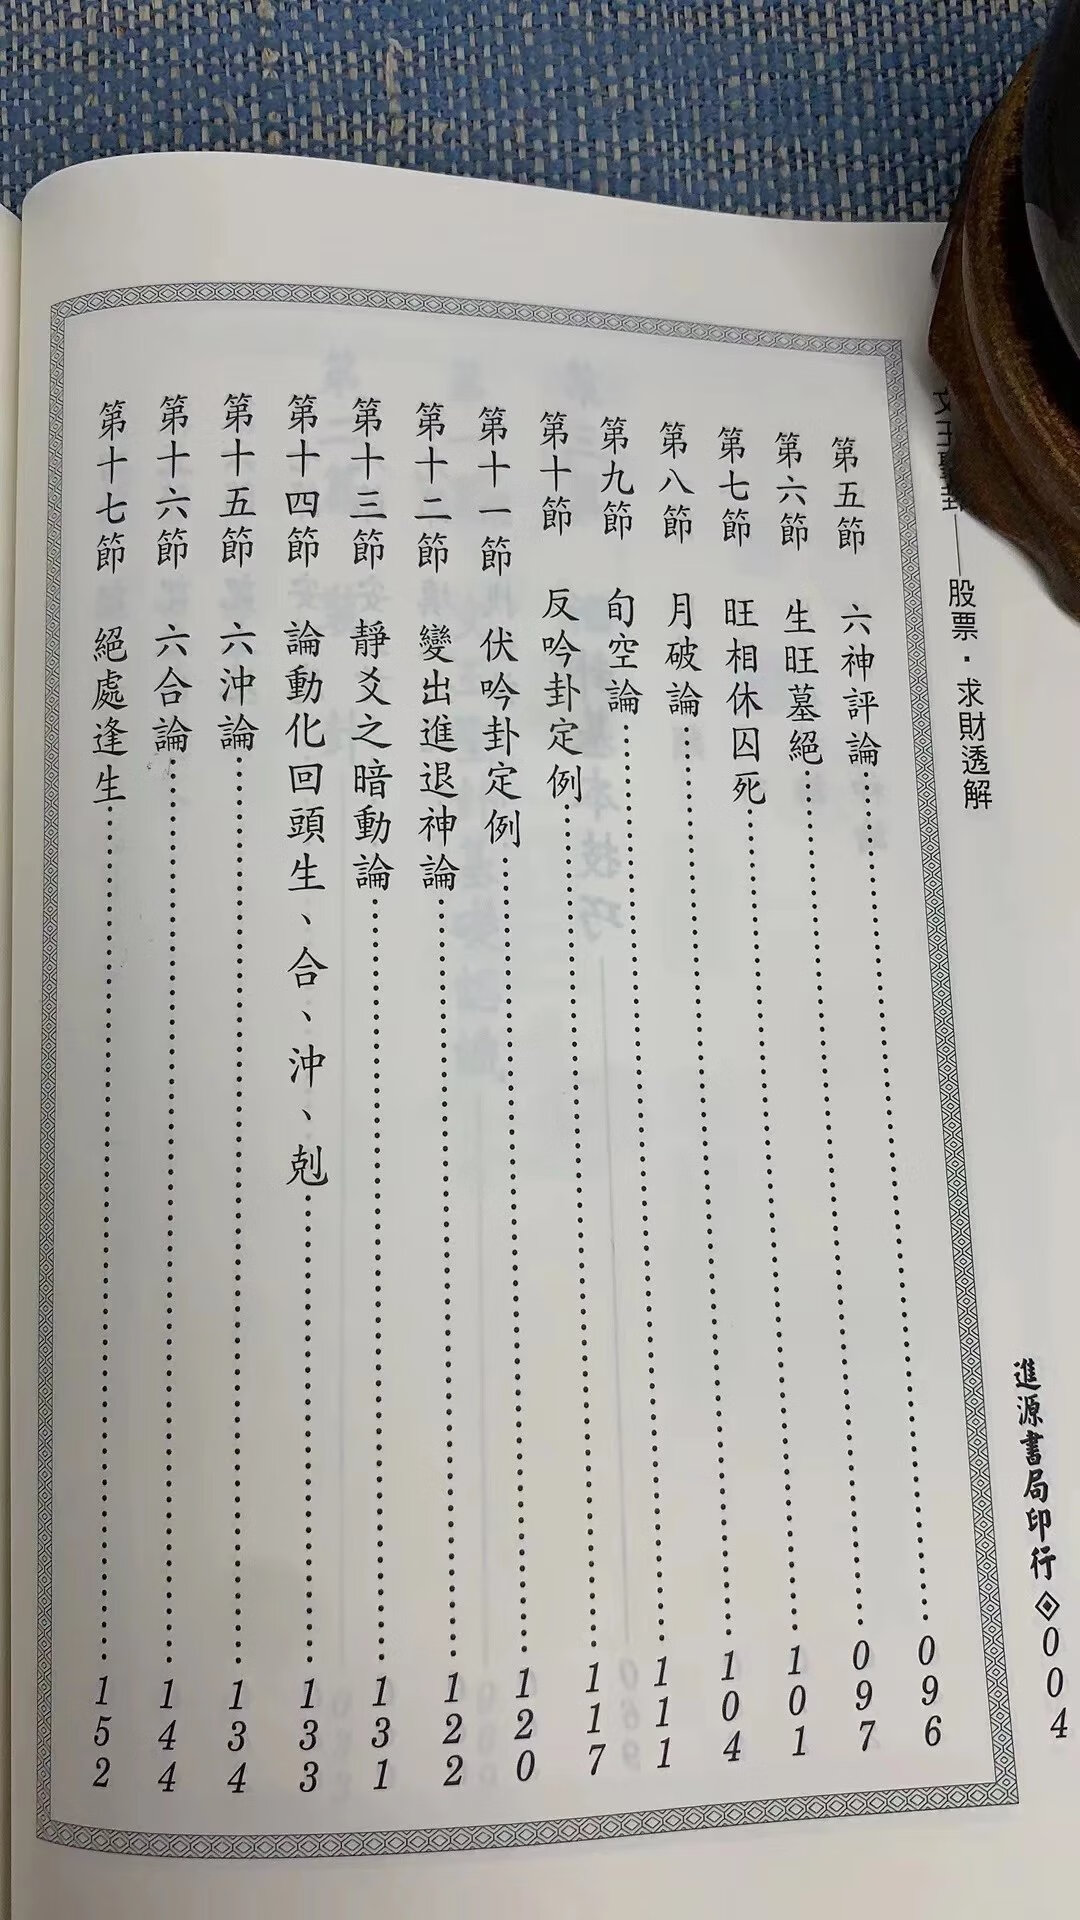 股票·求財透解
進源書局印行 004
第五節 六神評論 096
第六節 生旺墓絕 097
第七節 旺相休囚死 101
第八節 月破論 104
第九節 旬空論 111
第十節 反吟卦定例 117
第十一節 伏吟卦定例 120
第十二節 變出進退神論 122
第十三節 靜爻之暗動論 131
第十四節 論動化回頭生、合、沖、剋 133
第十五節 六沖論 134
第十六節 六合論 144
第十七節 絕處逢生 152